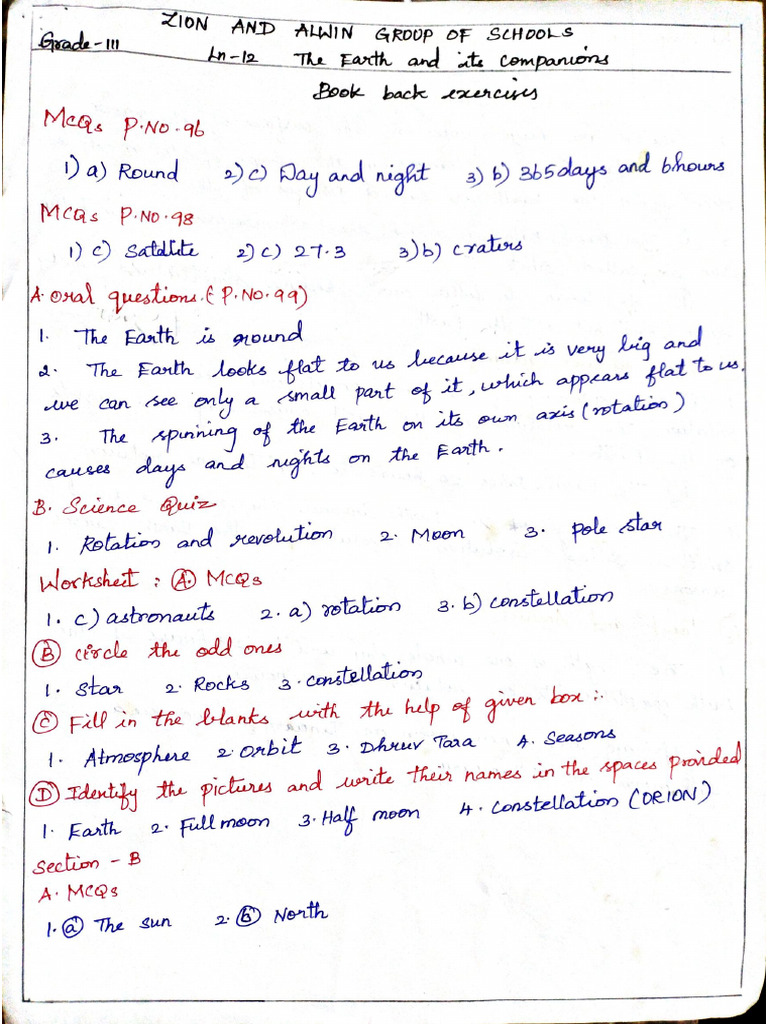 ZION AND ALWIN GROUP OF SCHOOLS
Grade-III Ln-12 The Earth and its companions
Book back exercises
MCQs P.NO.96
1) a) Round 2) c) Day and night 3) b) 365days and 6hours
MCQs P.NO.98
1) c) Satellite 2) c) 27.3 3) b) craters
A. Oral questions. (P.NO.99)
1. The Earth is round
2. The Earth looks flat to us because it is very big and
we can see only a small part of it, which appears flat to us.
3. The spinning of the Earth on its own axis (rotation)
causes days and nights on the Earth.
B. Science Quiz
1. Rotation and revolution 2. Moon 3. pole star
Worksheet : A. MCQs
1. c) astronauts 2. a) rotation 3. b) constellation
B circle the odd ones
1. Star 2. Rocks 3. constellation
C Fill in the blanks with the help of given box :-
1. Atmosphere 2. Orbit 3. Dhruv Tara 4. Seasons
D Identify the pictures and write their names in the spaces provided
1. Earth 2. Full moon 3. Half moon 4. Constellation (ORION)
Section - B
A. MCQs
1. a The sun 2. b North